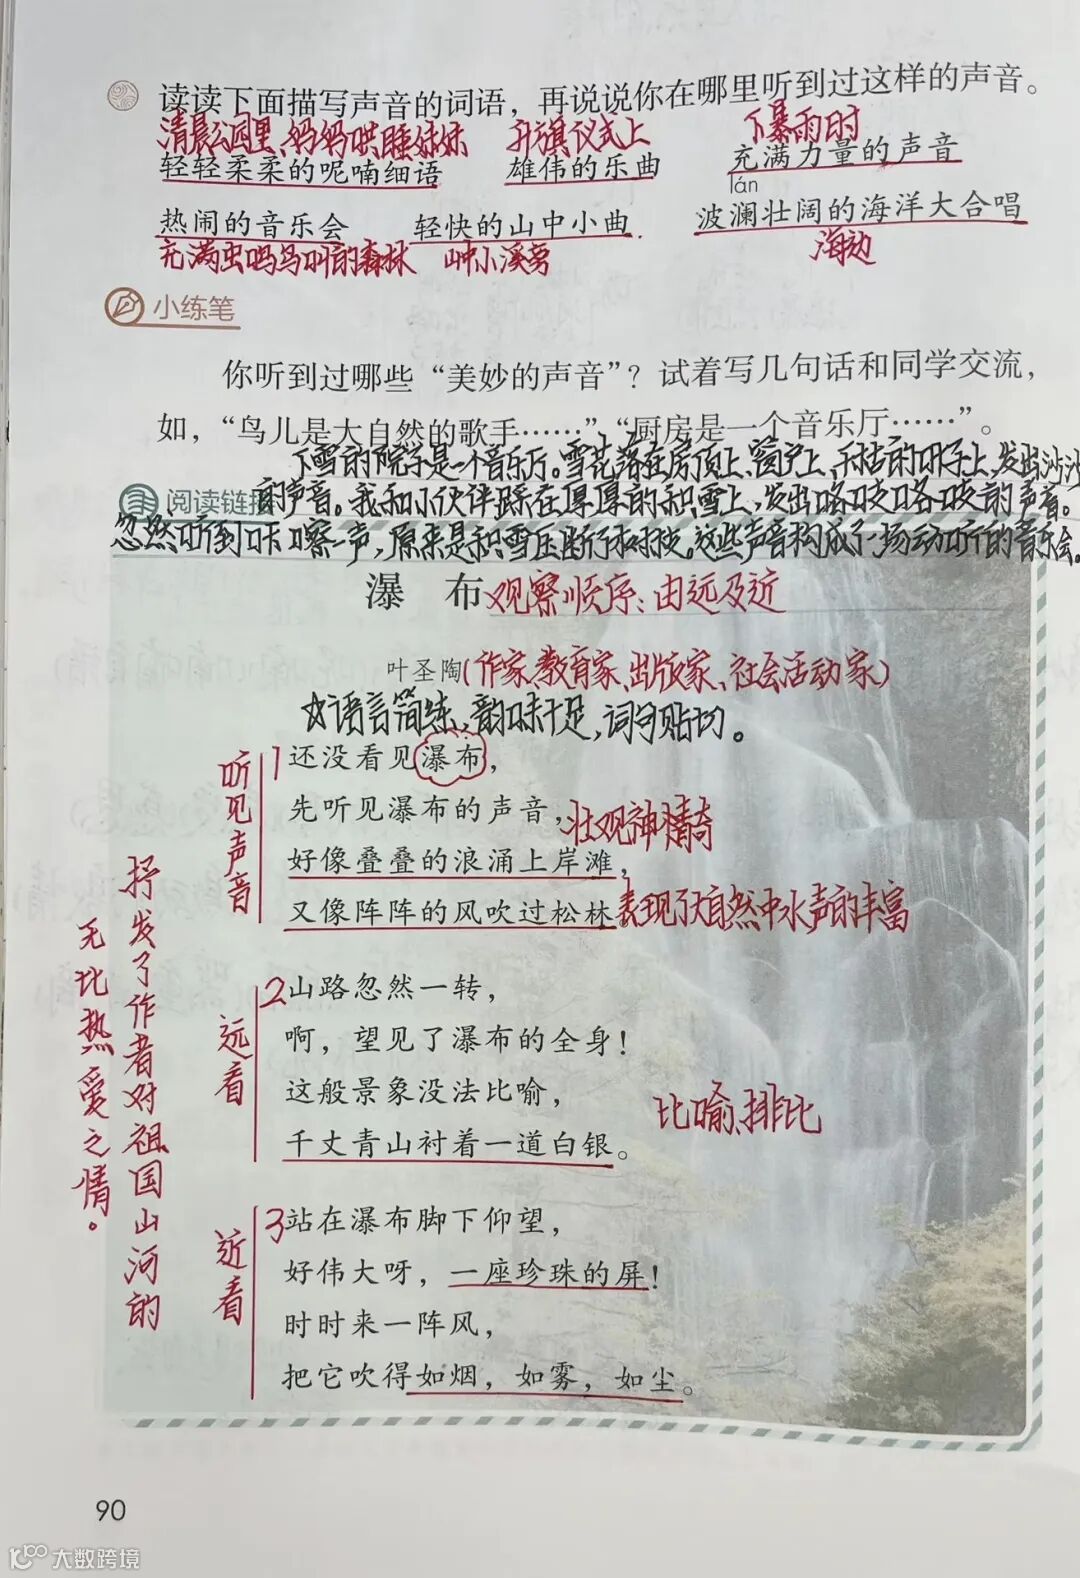 读读下面描写声音的词语，再说说你在哪里听到过这样的声音。
清晨公园里、妈妈哄睡妹妹 升旗仪式上 下暴雨时
轻轻柔柔的呢喃细语 雄伟的乐曲 充满力量的声音
lán
热闹的音乐会 轻快的山中小曲 波澜壮阔的海洋大合唱
充满虫鸣鸟叫的森林 山中小溪旁 海边
小练笔
你听到过哪些“美妙的声音”？试着写几句话和同学交流，
如，“鸟儿是大自然的歌手……”“厨房是一个音乐厅……”。
下雪的院子是一个音乐厅。雪花落在房顶上、窗户上、干枯的叶子上，发出沙沙
的声音。我和小伙伴踩在厚厚的积雪上，发出咯吱咯吱的声音。
阅读链接
忽然听到咔嚓一声，原来是积雪压断了树枝。这些声音构成了一场动听的音乐会。
瀑 布 观察顺序：由远及近
叶圣陶（作家、教育家、出版家、社会活动家）
☆语言简练，韵味十足，词句贴切。
听见声音
1 还没看见瀑布，
先听见瀑布的声音， 壮观神情奇
好像叠叠的浪涌上岸滩，
又像阵阵的风吹过松林。 表现了大自然中水声的丰富
远看
2 山路忽然一转，
啊，望见了瀑布的全身！
这般景象没法比喻， 比喻、排比
千丈青山衬着一道白银。
近看
3 站在瀑布脚下仰望，
好伟大呀，一座珍珠的屏！
时时来一阵风，
把它吹得如烟，如雾，如尘。
抒发了作者对祖国山河的
无比热爱之情。
90
大数跨境